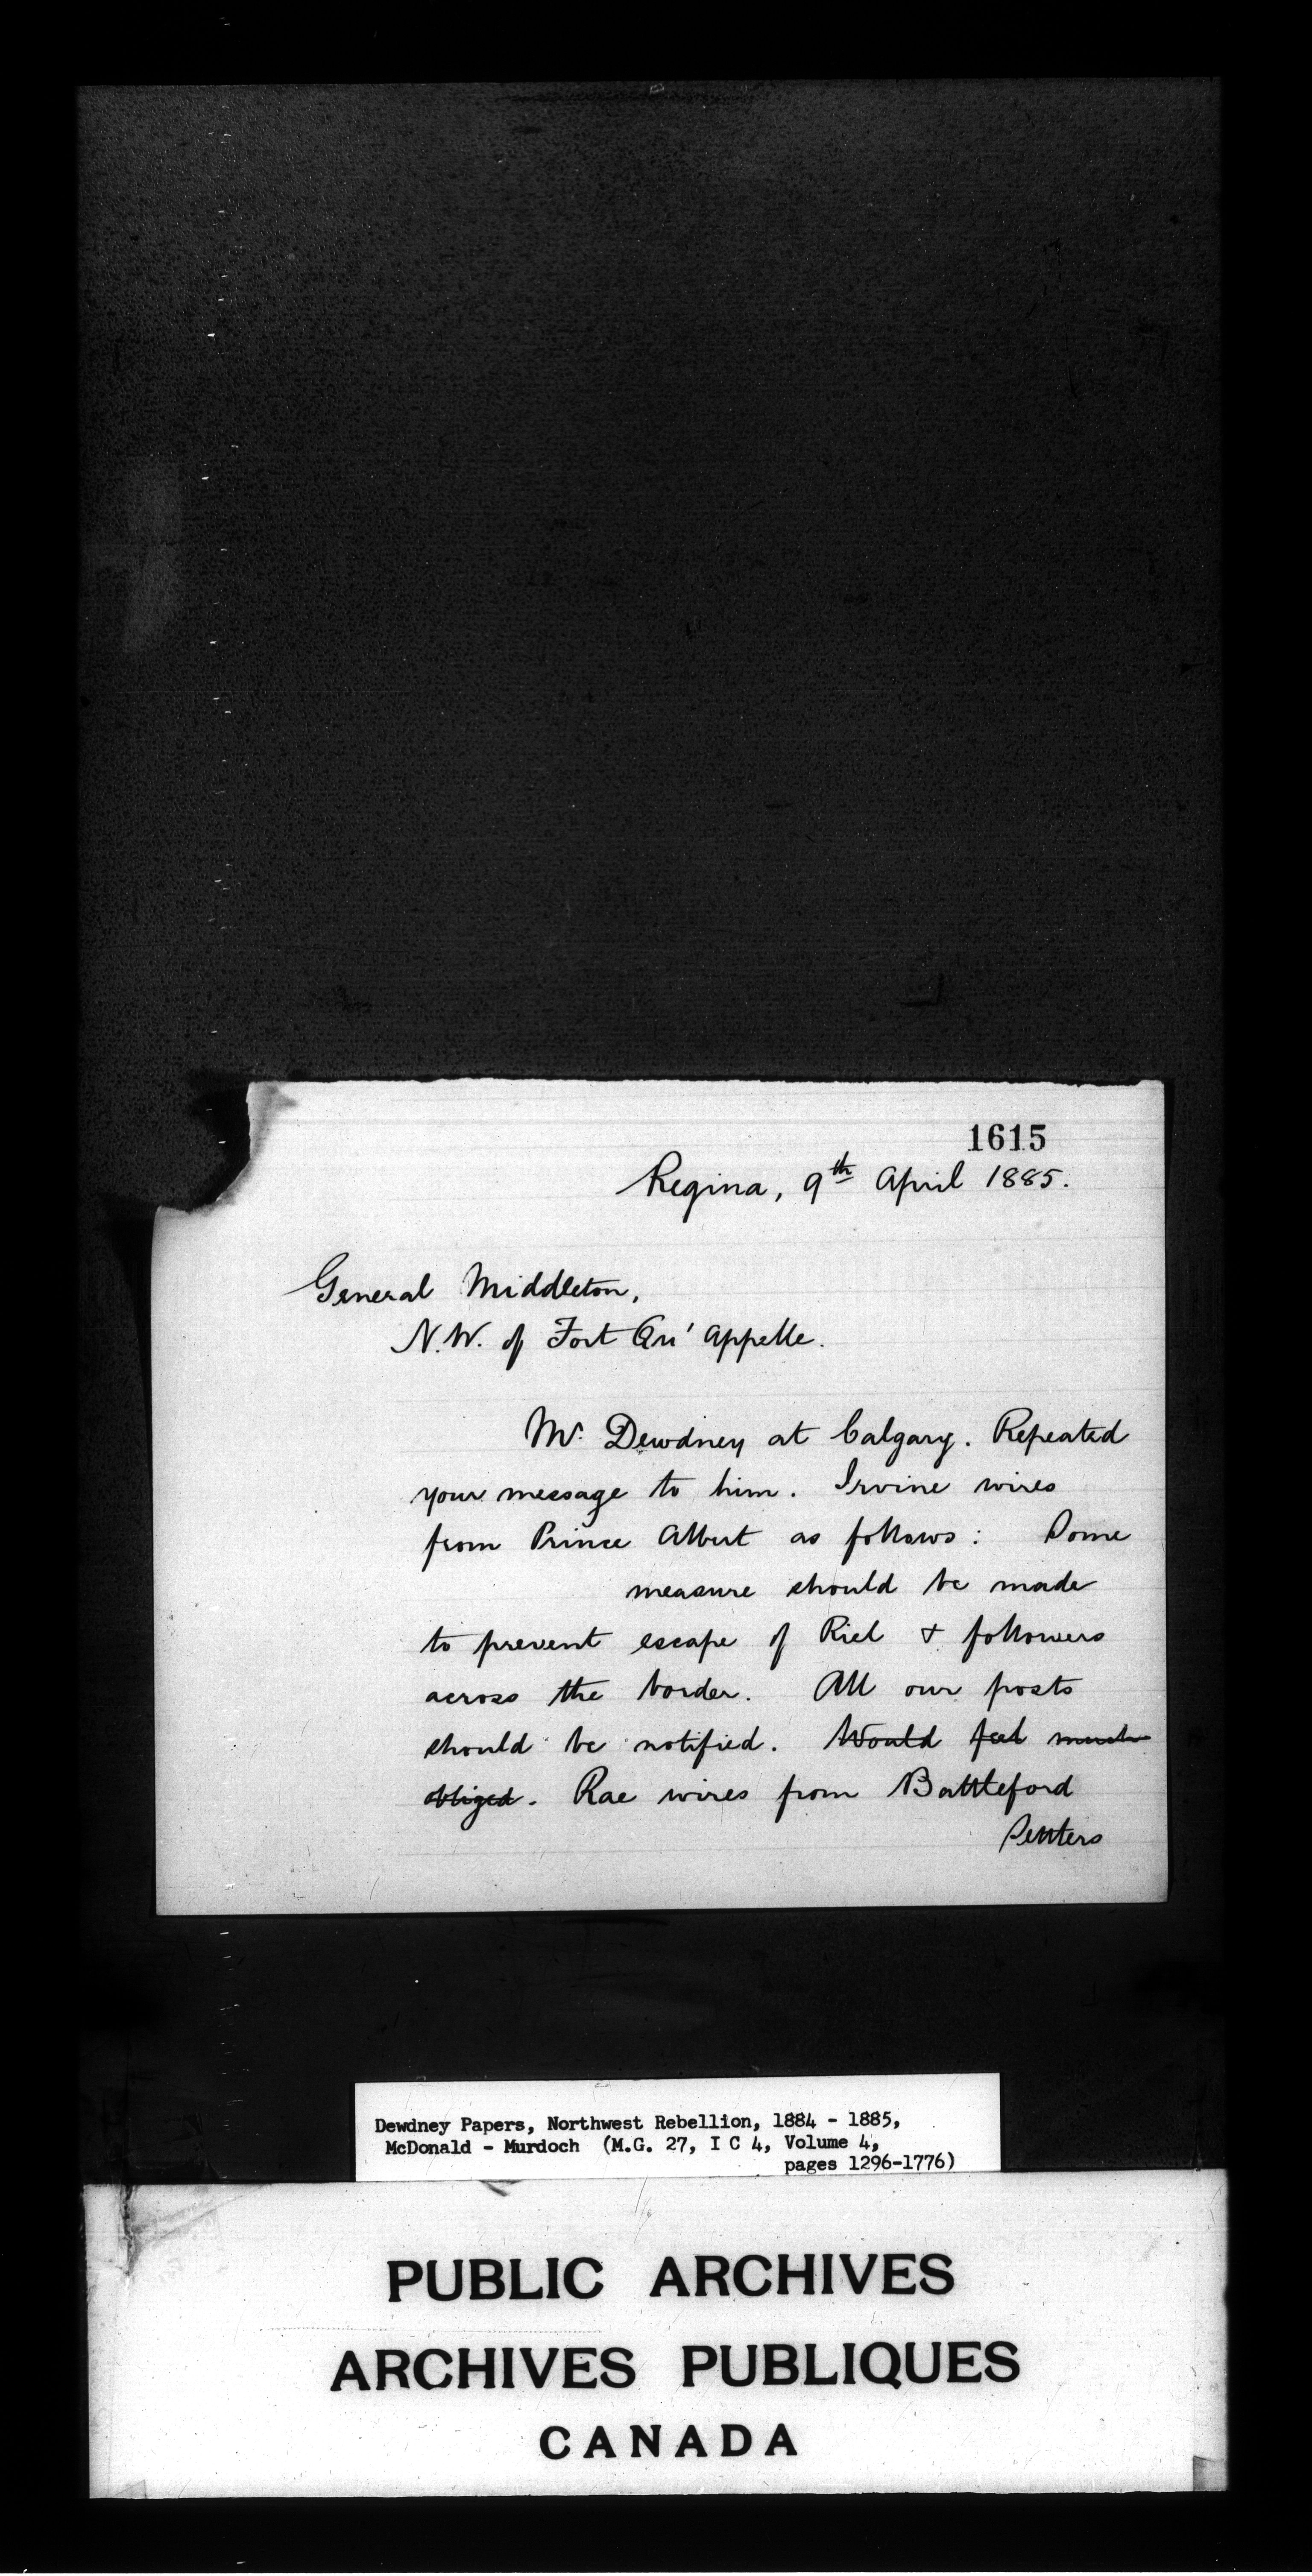 1615
Regina, 9th April 1885.
General Middleton,
N.W. of Fort Qu'Appelle.
Mr. Dewdney at Calgary. Repeated
your message to him. Irvine wires
from Prince Albert as follows: Some
measure should be made
to prevent escape of Riel & followers
across the border. All our posts
should be notified. Would feel much
obliged. Rae wires from Battleford
Settlers
Dewdney Papers, Northwest Rebellion, 1884 - 1885,
McDonald - Murdoch (M.G. 27, I C 4, Volume 4,
pages 1296-1776)
PUBLIC ARCHIVES
ARCHIVES PUBLIQUES
CANADA